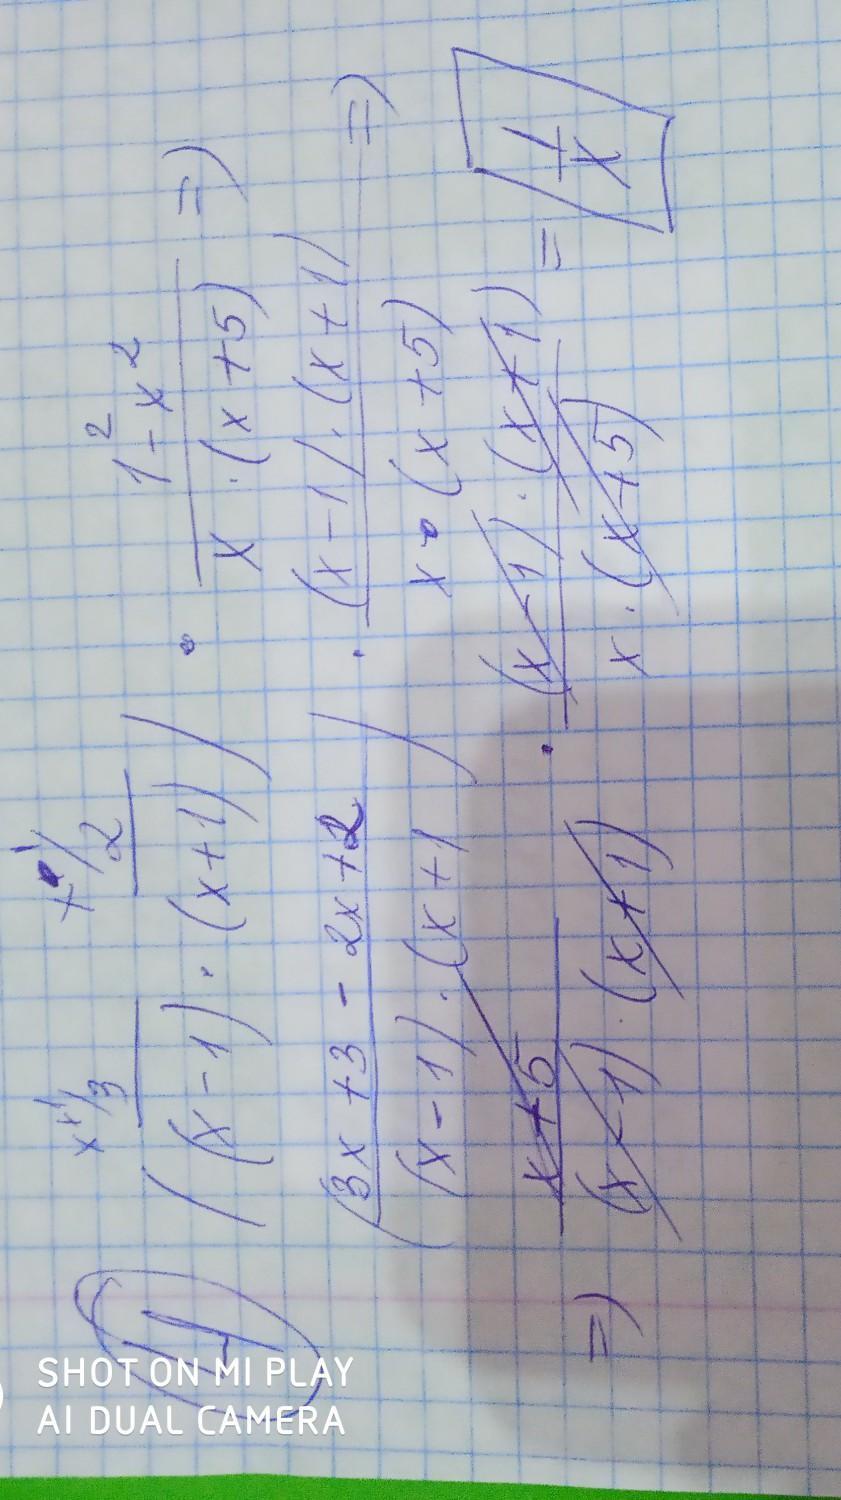 4
x+1/3 +1/2 1² - x²
( (x-1) · (x+1) ) · x · (x+5) =)
(3x+3 - 2x+2 (x-1) · (x+1) =)
(x-1) · (x+1 ) · x · (x+5)
=) x+5 · (x-1) · (x+1) = 1
(x-1) · (x+1) x · (x+5) x
SHOT ON MI PLAY
AI DUAL CAMERA